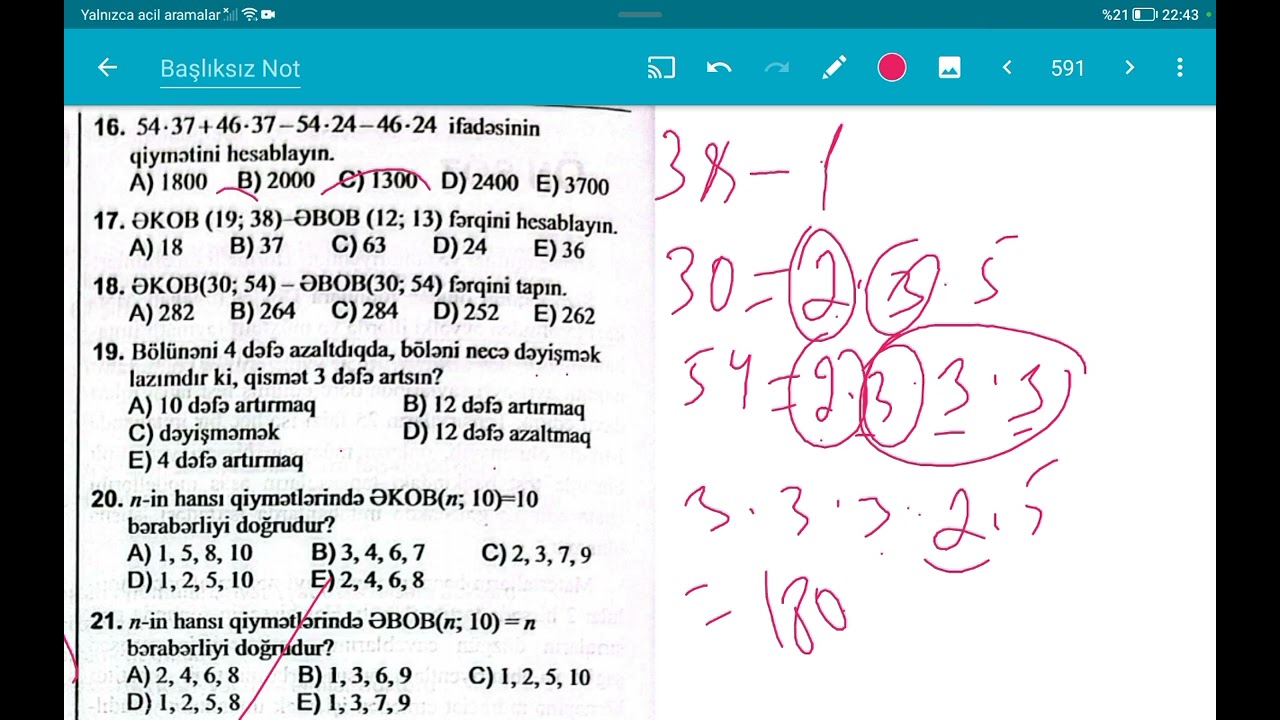 Yalnızca acil aramalar
%21 22:43
Başlıksız Not
591
16. 54·37+46·37−54·24−46·24 ifadəsinin
qiymətini hesablayın.
A) 1800 B) 2000 C) 1300 D) 2400 E) 3700
17. ƏKOB (19; 38)−ƏBOB (12; 13) fərqini hesablayın.
A) 18 B) 37 C) 63 D) 24 E) 36
18. ƏKOB(30; 54) − ƏBOB(30; 54) fərqini tapın.
A) 282 B) 264 C) 284 D) 252 E) 262
19. Bölünəni 4 dəfə azaltdıqda, böləni necə dəyişmək
lazımdır ki, qismət 3 dəfə artsın?
A) 10 dəfə artırmaq B) 12 dəfə artırmaq
C) dəyişməmək D) 12 dəfə azaltmaq
E) 4 dəfə artırmaq
20. n-in hansı qiymətlərində ƏKOB(n; 10)=10
bərabərliyi doğrudur?
A) 1, 5, 8, 10 B) 3, 4, 6, 7 C) 2, 3, 7, 9
D) 1, 2, 5, 10 E) 2, 4, 6, 8
21. n-in hansı qiymətlərində ƏBOB(n; 10) = n
bərabərliyi doğrudur?
A) 2, 4, 6, 8 B) 1, 3, 6, 9 C) 1, 2, 5, 10
D) 1, 2, 5, 8 E) 1, 3, 7, 9
38 − 1
30 = 2 · 3 · 5
54 = 2 · 3 · 3 · 3
3 · 3 · 3 · 2 · 5
= 180